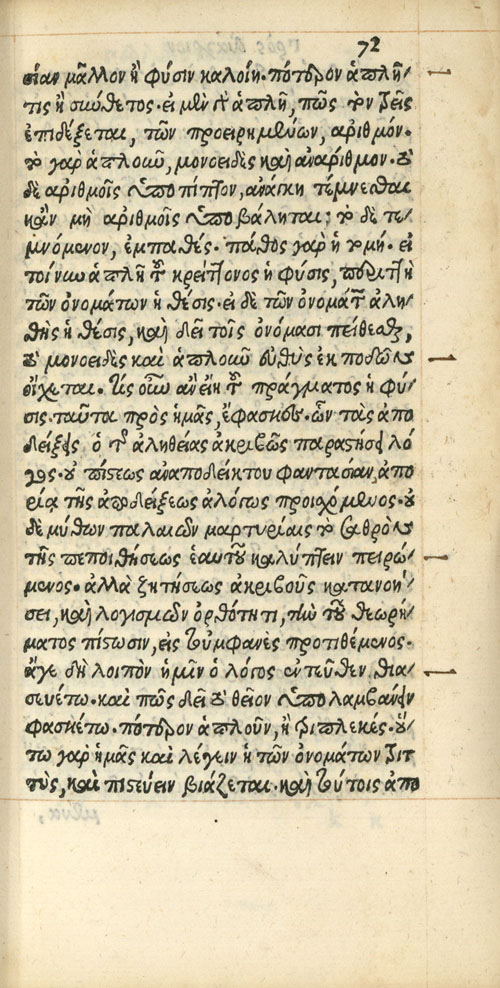 72
σίαν μᾶλλον ἢ φύσιν καλοίη· πότερον ἁπλῆ
τις ἢ σύνθετος· εἰ μὲν οὖν ἁπλῆ, πῶς τὸν τρεῖς
ἐπιδέξεται, τῶν προειρημένων, ἀριθμόν·
τὸ γὰρ ἁπλοῦν, μονοειδὲς καὶ ἀναρίθμον· τὸ
δὲ ἀριθμοῖς ὑποπίπτον, ἀνάγκη τέμνεσθαι
κἂν μὴ ἀριθμοῖς ὑποβάληται; τὸ δὲ τε
μνόμενον, ἐμπαθές· πάθος γὰρ ἡ τομή· εἰ
τοίνυν ἁπλῆ τοῦ κρείττονος ἡ φύσις, περιττὴ
τῶν ὀνομάτων ἡ θέσις· εἰ δὲ τῶν ὀνομάτων ἀλη
θὴς ἡ θέσις, καὶ δεῖ τοῖς ὀνόμασι πείθεσθαι,
τὸ μονοειδὲς καὶ ἁπλοῦν εὐθὺς ἐκποδὼν
οἴχεται. τίς οὖν ἂν εἴη τοῦ πράγματος ἡ φύ
σις· ταῦτα πρὸς ἡμᾶς, ἔφασκεν· ὧν τὰς ἀπο
δείξεις ὁ τῆς ἀληθείας ἀκριβῶς παραστήσει λό
γος· οὐ πίστεως ἀναποδείκτου φαντασίαν, ἀπο
ρίᾳ τῆς ἀποδείξεως ἀλόγως προισχόμενος· οὐ
δὲ μύθων παλαιῶν μαρτυρίαις τὸ σαθρὸν
τῆς πεποιθήσεως ἑαυτοῦ καλύπτειν πειρώ
μενος· ἀλλὰ ζητήσεως ἀκριβοῦς κατανοή
σει, καὶ λογισμῶν ὀρθότητι, τὴν τοῦ θεωρή
ματος πίστωσιν, εἰς τοὐμφανὲς προτιθέμενος·
ἄγε δὴ λοιπὸν ἡμῖν ὁ λόγος ἐντεῦθεν θια
σευέτω· καὶ πῶς δεῖ τὸ θεῖον ὑπολαμβάνειν
φασκέτω· πότερον ἁπλοῦν, ἢ τριπλεκές· οὕ
τω γὰρ ἡμᾶς καὶ λέγειν ἡ τῶν ὀνομάτων τριτ
τὺς, καὶ πιστεύειν βιάζεται· καὶ τούτοις ἀπο